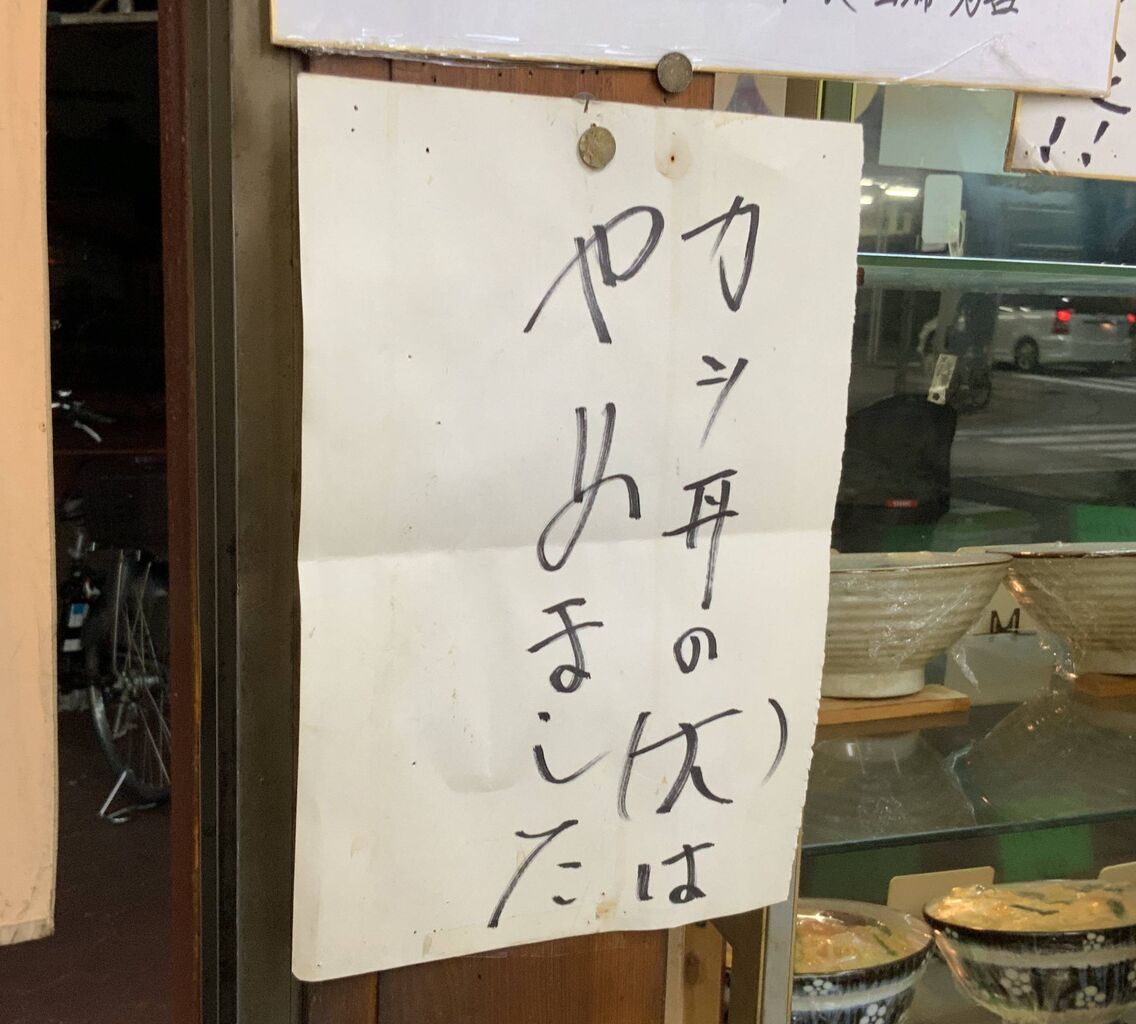 カツ丼の(大)は
やめました
!!
M